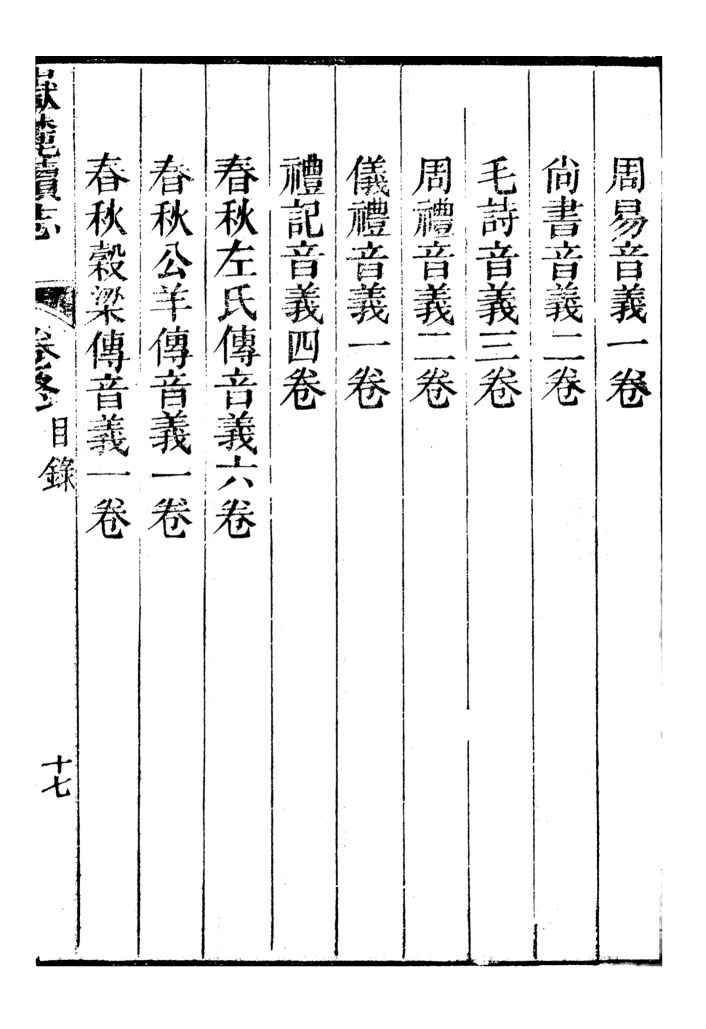 周易音義一卷
尙書音義二卷
毛詩音義三卷
周禮音義二卷
儀禮音義一卷
禮記音義四卷
春秋左氏傳音義六卷
春秋公羊傳音義一卷
春秋穀梁傳音義一卷
嶽麓續志
卷終
目錄
十七